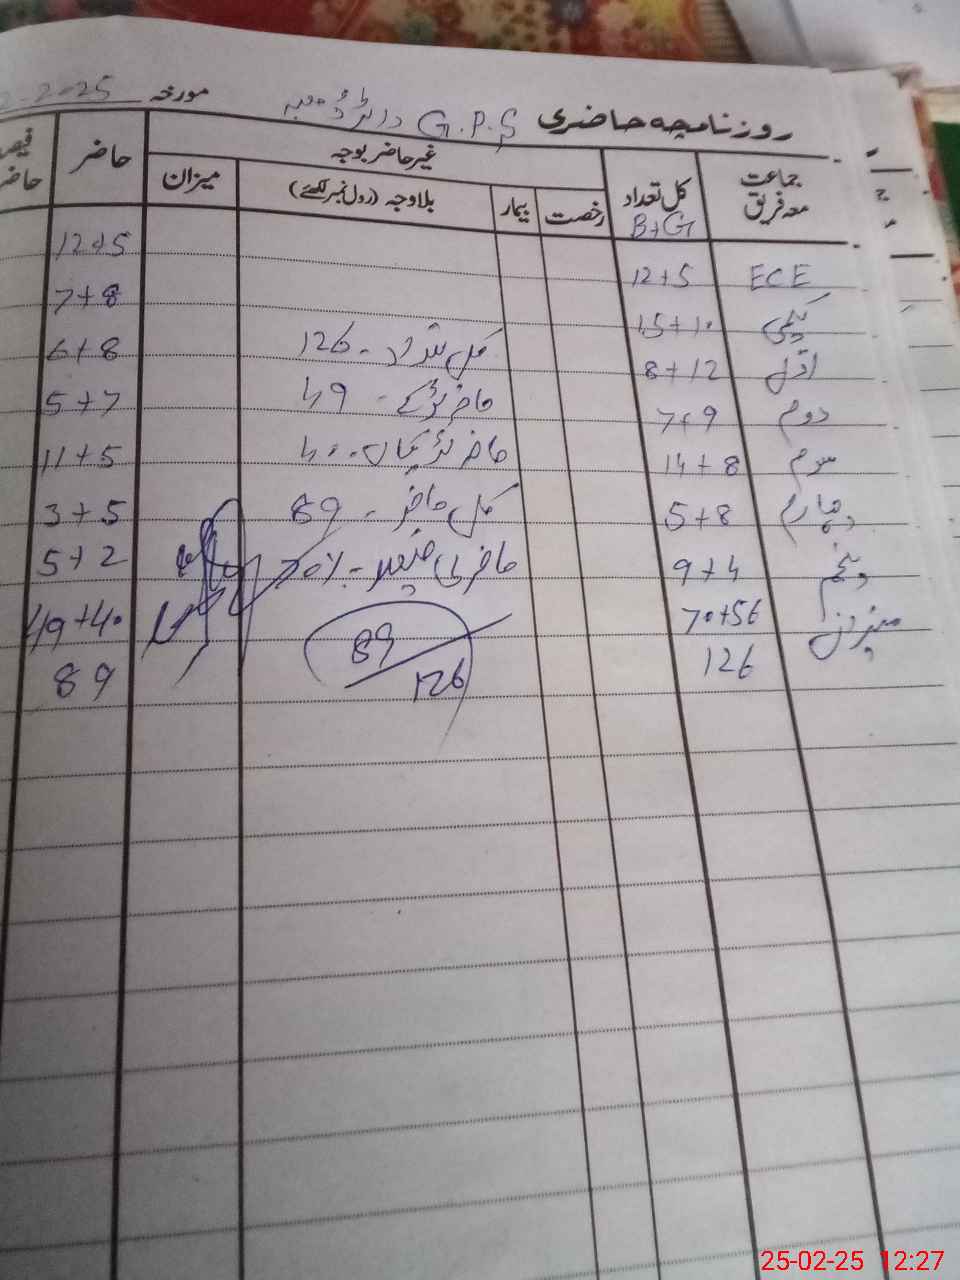 روزنامچہ حاضری G.P.S مورخہ 2-2025
جماعت معہ فریق کل تعداد B+G غیر حاضر بوجہ حاضر
رخصت بیمار بلاوجہ (رول نمبر لکھئے) میزان
ECE 12+5 12+5
کچی 15+10 7+8
اول 8+12 کل تعداد - 126 6+8
دوم 7+9 حاضر لڑکے - 49 5+7
سوم 14+8 حاضر لڑکیاں - 40 11+5
چہارم 5+8 کل حاضر - 89 3+5
پنجم 9+4 حاضری فیصد - 70% 5+2
میزان 70+56 49+40
126 89/126 89
25-02-25 12:27